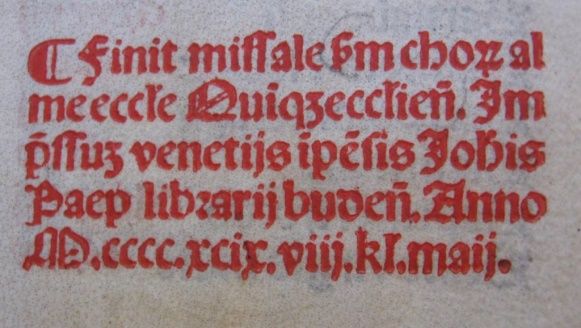 ¶ Finit miſſale ẜm choꝝ al
me eccłe Quiqꝫeccłien̄. Im
p̄ſſuꝫ venetijs ip̄ēſis Joħis
Paep librarij buden̄. Anno
M.cccc.xcix.viij.kl.maij.